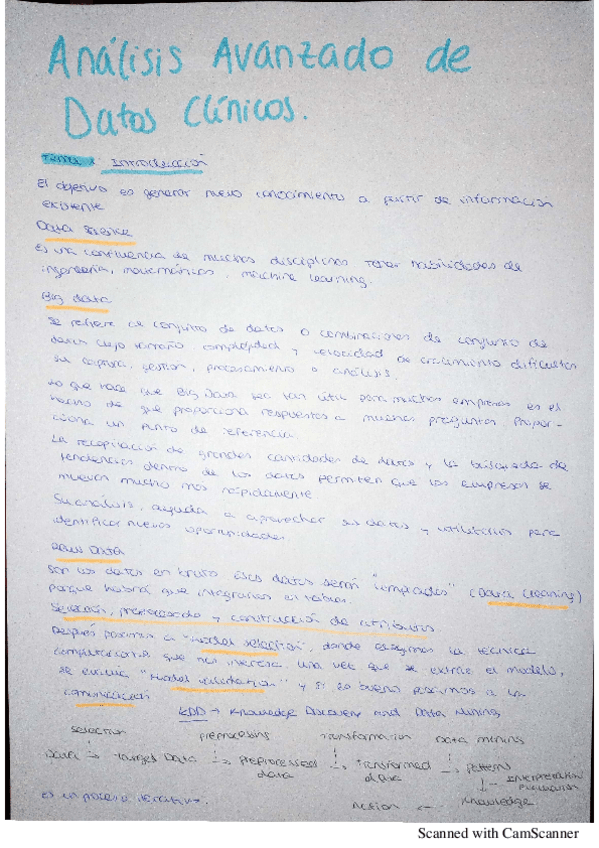 Análisis Avanzado de
Datos Clínicos.
Tema 1 Introducción
El objetivo es generar nuevo conocimiento a partir de información
existente
Data Science
Es una confluencia de muchas disciplinas tener habilidades de
ingeniería, matemáticas, machine learning.
Big data
Se refiere al conjunto de datos o combinaciones de conjunto de
datos cuyo tamaño complejidad y velocidad de crecimiento dificultan
su captura, gestión, procesamiento o análisis.
Lo que hace que Big Data sea tan útil para muchas empresas es el
hecho de que proporciona respuestas a muchas preguntas. Propor-
ciona un punto de referencia
La recopilación de grandes cantidades de datos y la búsqueda de
tendencias dentro de los datos permiten que las empresas se
muevan mucho más rápidamente
Su análisis, ayuda a aprovechar sus datos y utilizarlos para
identificar nuevas oportunidades
Raw Data
Son los datos en bruto. Estos datos serán "limpiados" (Data cleaning)
porque habrá que integrarlos en tablas.
Selección, preprocesado y construcción de atributos
Después pasamos a "model selection", donde escogemos la técnica
computacional que nos interesa. Una vez que se extrae el modelo,
se evalúa "Model validation" y si es bueno pasamos a la
comunicación
KDD → Knowledge Discovery and Data Mining
selection preprocessing transformation Data mining
Data → Target Data → preprocessed data → transformed data → patterns
interpretation
evaluation
Action ← Knowledge
Es un proceso iterativo.
Scanned with CamScanner